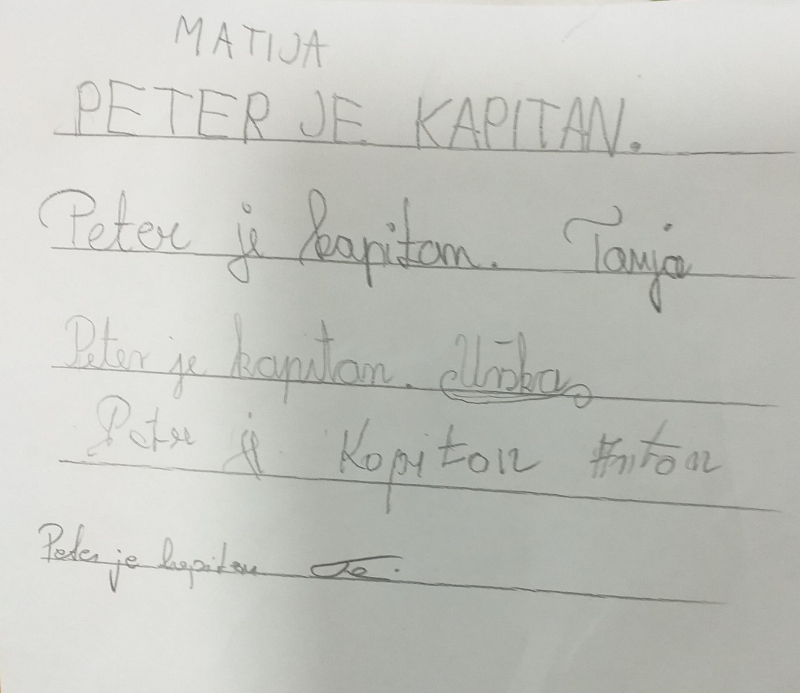 MATIJA
PETER JE KAPITAN.
Peter je kapitan. Tanja
Peter je kapitan. Urška
Peter je Kapitan Anton
Peter je kapitan